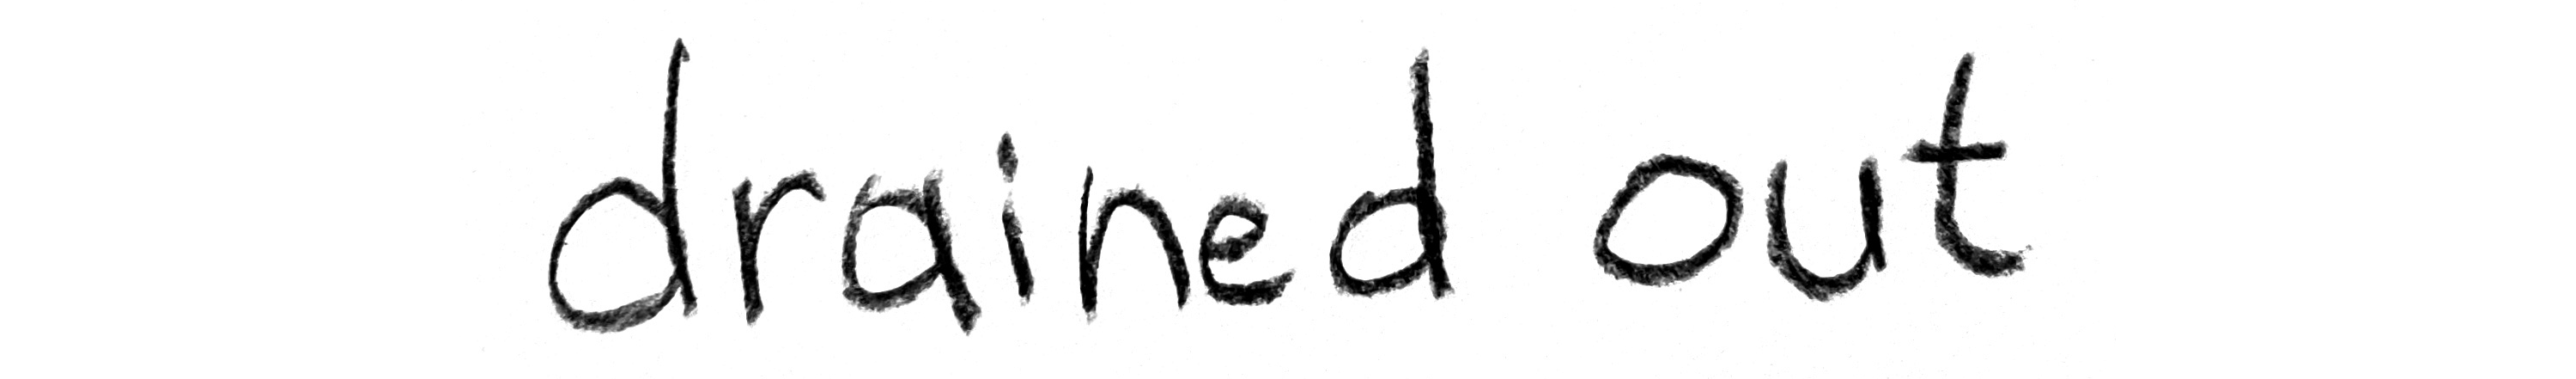 drained out